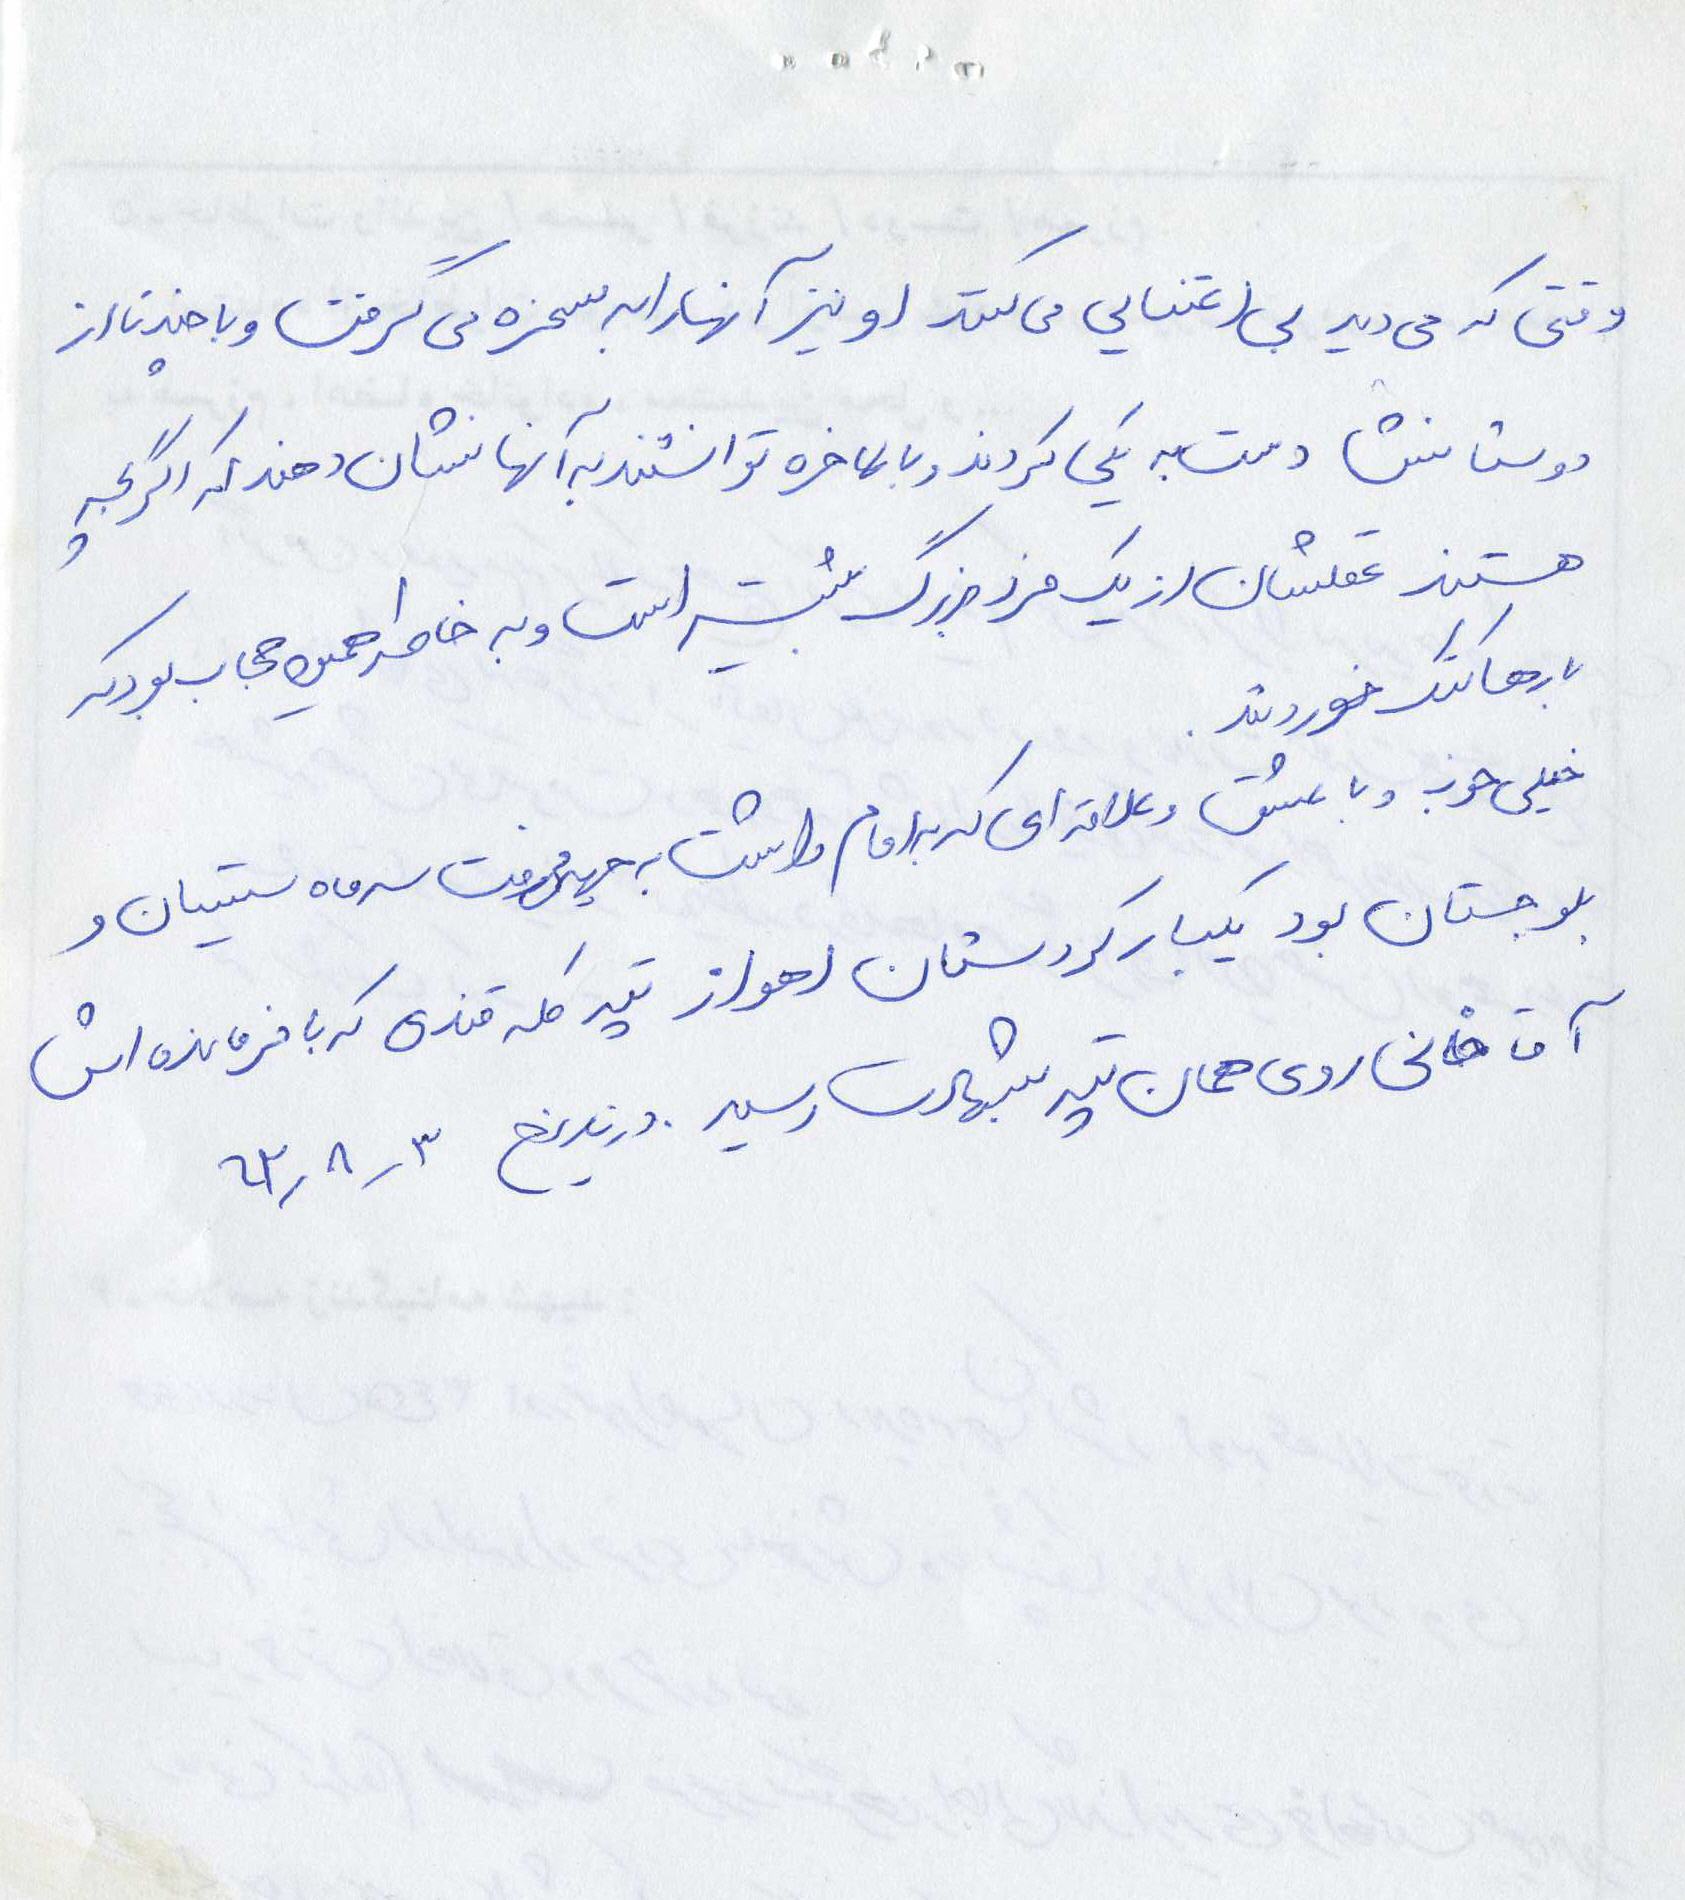 وقتی که می دید بی اعتنایی می کنند او نیز آنها را به مسخره می گرفت و با چند تا از
دوستانش دست به یکی کردند و بالاخره توانستند به آنها نشان دهند که اگر بچه
هستند عقلشان از یک فرد بزرگ بیشتر است و به خاطر همین حجاب بود که
بارها کتک خوردند.
خیلی خوب و با عشق و علاقه ای که به امام داشت به جبهه رفت سه ماه سیستان و
بلوچستان بود یکبار کردستان اهواز تپه کله قندی که با فرمانده اش
آقاخانی روی همان تپه شهادت رسید. در تاریخ ۳ر۸ر۶۲